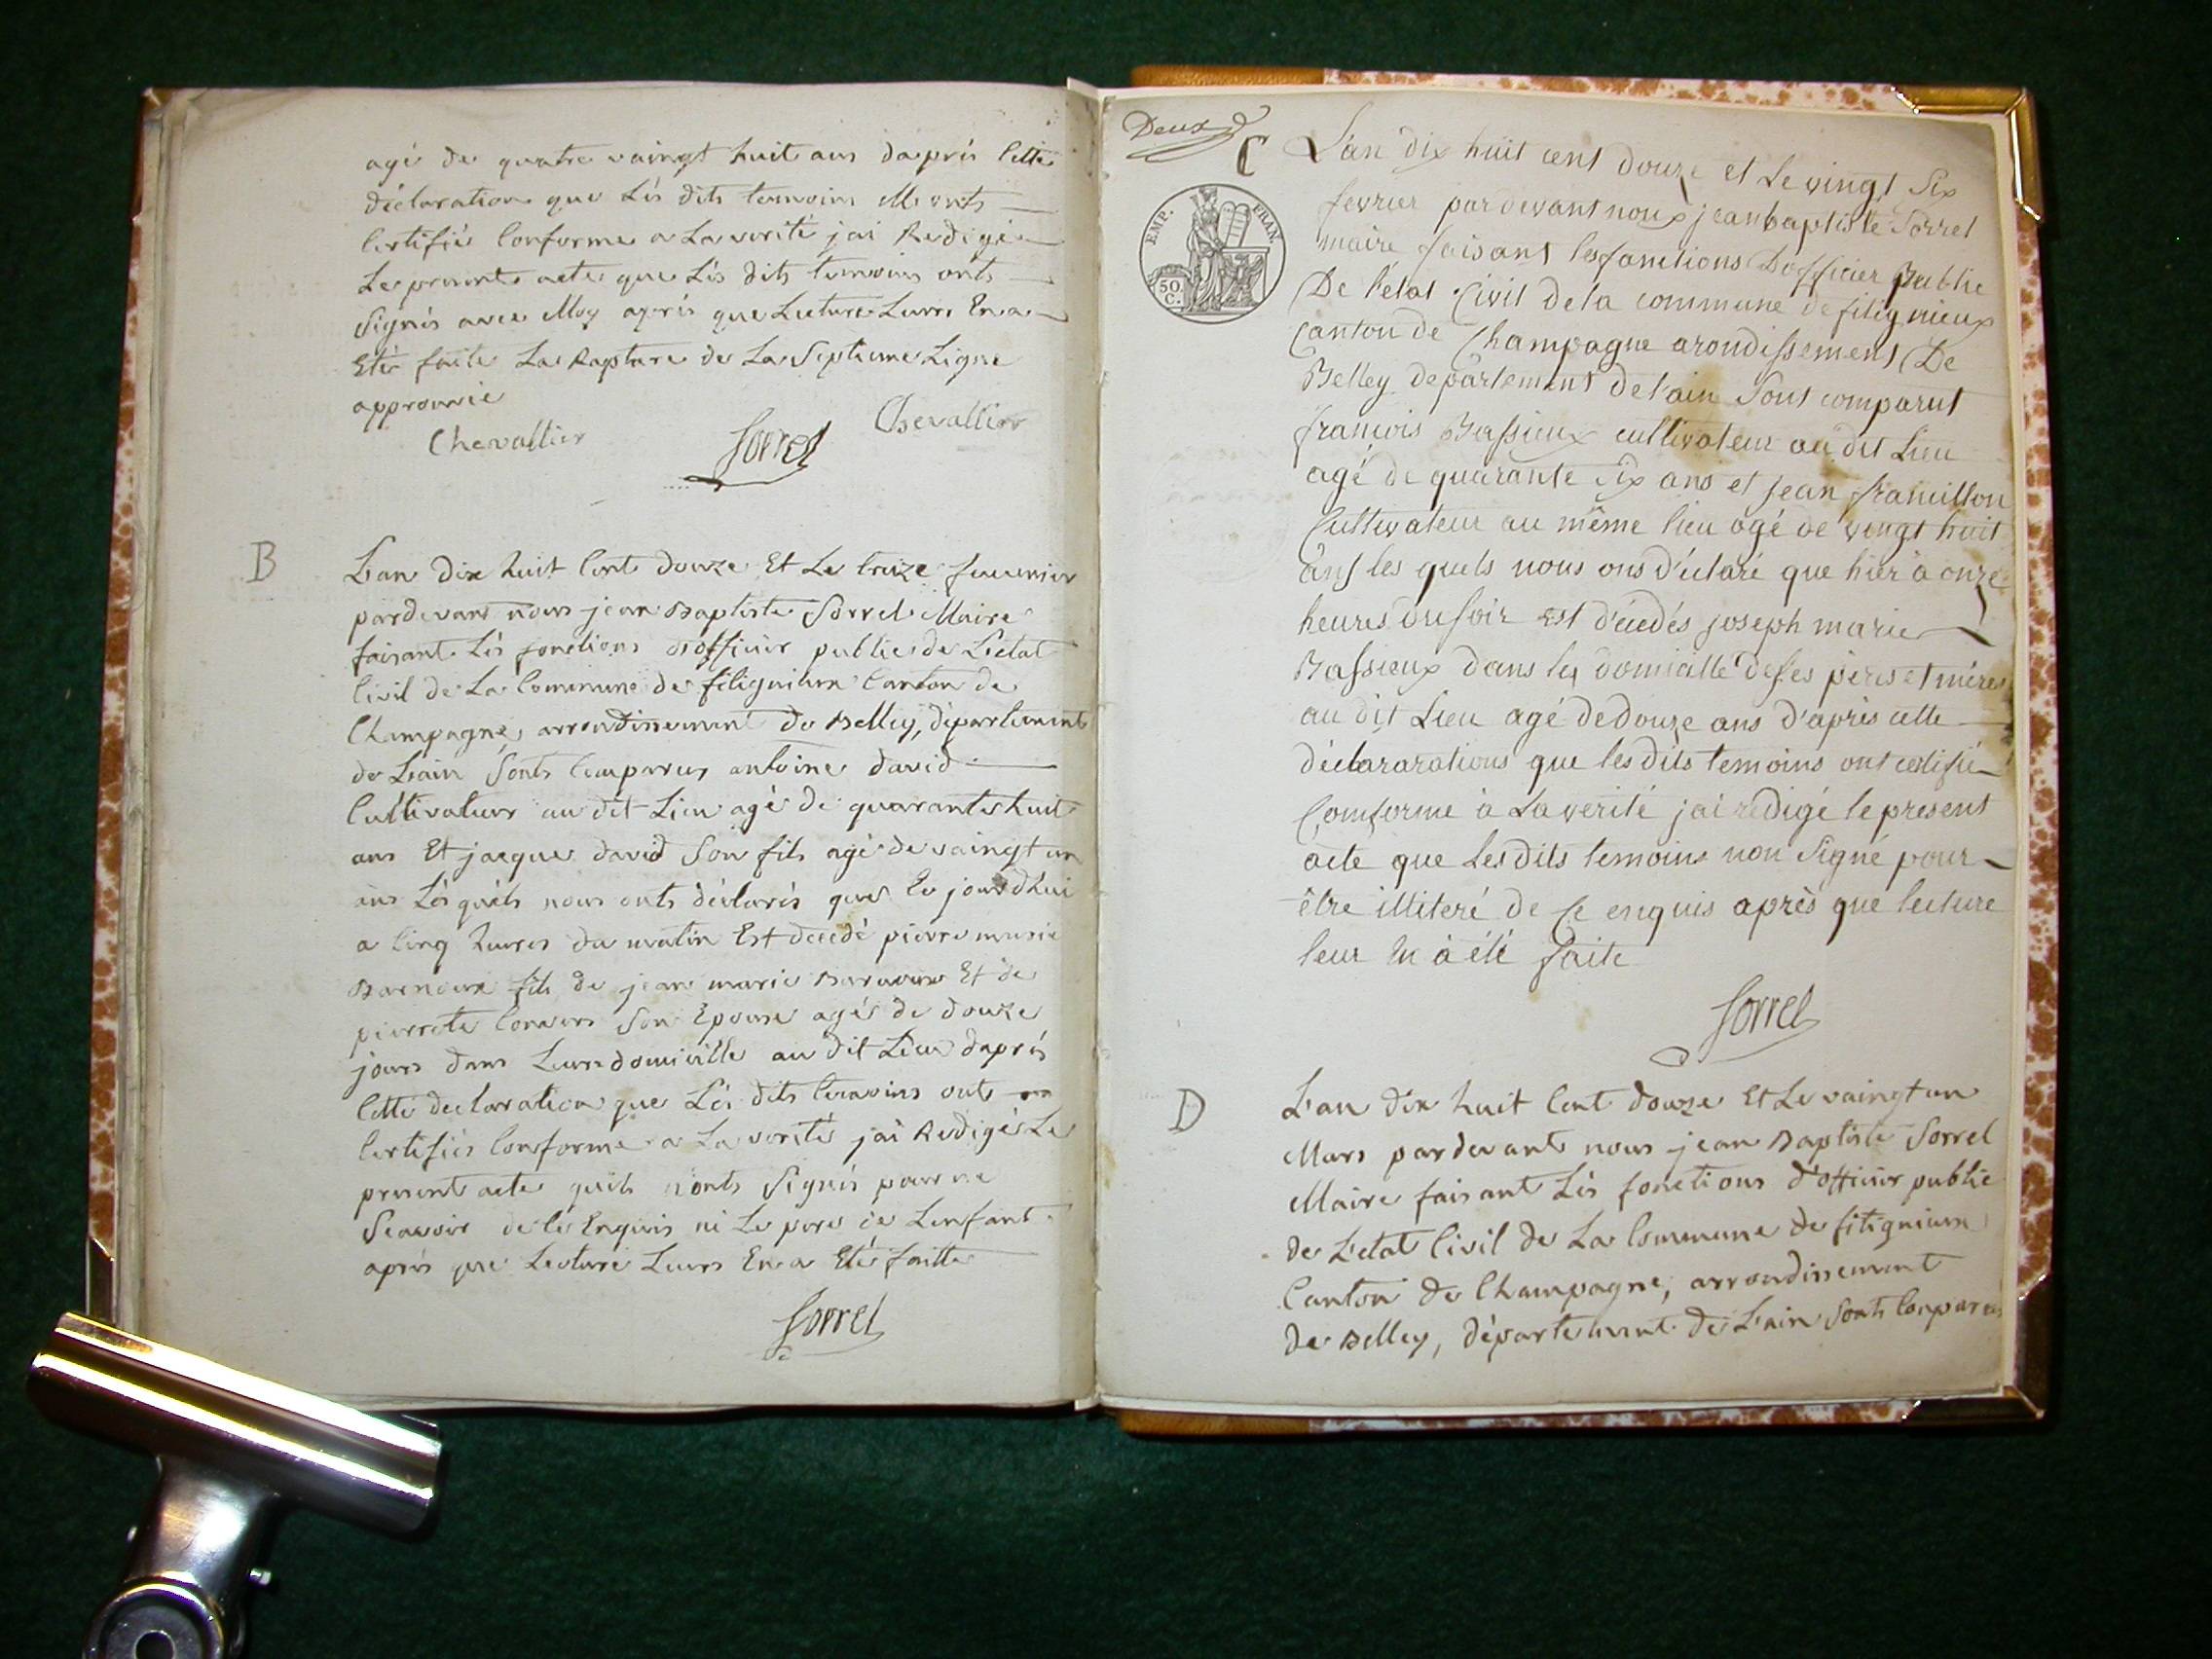 agé de quatre vaingt huit ans daprés Cette
déclaration que Lés dits temoins M'onts
Certifiés Conforme a La verité jai Redigé
Le present acte que Lés dits temoins onts
Signés avec Moy aprés que Lecture Leurs En a
Eté faite La Rapture de La Septieme Ligne
approuvée
Chevallier Sorrel Chevallier
B
L'an dix huit Cent douze Et Le treize
pardevant nous jean Baptiste Sorrel Maire
faisant Lés fonctions d'officier public de L'etat
Civil de La Commune de filignieux Canton de
Champagne, arrondissement de Belley, département
de L'ain Sonts Comparus antoine david
Cultivateur au dit Lieu agé de quarante huit
ans Et jacque david Son fils agé de vaingt un
ans Lésquéls nous onts déclarés que Ce jourd'hui
a Cinq heures du matin Est decedé pierre marie
fils de jean marie Et de
pierrete Son Epouse agés de douze
jours dans Leurs domicille au dit Lieu daprés
Cette declaration que Lés dits temoins onts
Certifiés Conforme a La verité jai Redigé Le
present acte quils n'onts Signés pour ne
Scavoir de Ce Enquis ni Le pere de L'enfant
aprés que Lecture Leurs En a Eté faitte
Sorrel
Deux
C
EMP. FRAN.
50. C.
L'an dix huit cent douze et Le vingt Six
fevrier pardevant nous jean baptiste Sorrel
maire faisant les fonctions D'officier Public
De l'état Civil de la commune de filignieux
Canton de Champagne arondissement De
Belley departement de l'ain Sont comparut
françois Bassieux cultivateur au dit Lieu
agé de quarante Six ans et jean francillon
Cultivateur au même lieu agé de vingt huit
ans les quels nous ons d'éclaré que hier à onze
heures du soir est d'écédés joseph marie
Bassieux dans les domicille de ses pères et mères
au dit Lieu agé de douze ans d'après cette
déclararations que les dits temoins ont certifié
Comforme à La verité jai redigé le present
acte que Les dits temoins non Signé pour
être illiteré de Ce enquis après que lecture
leur en à été faite
Sorrel
D
L'an dix huit Cent douze Et Le vaingt un
Mars pardevant nous jean Baptiste Sorrel
Maire faisant Lés fonctions d'officier public
de L'etat Civil de La Commune de filignieux
Canton de Champagne, arrondissement
de Belley, département de L'ain Sonts Comparus